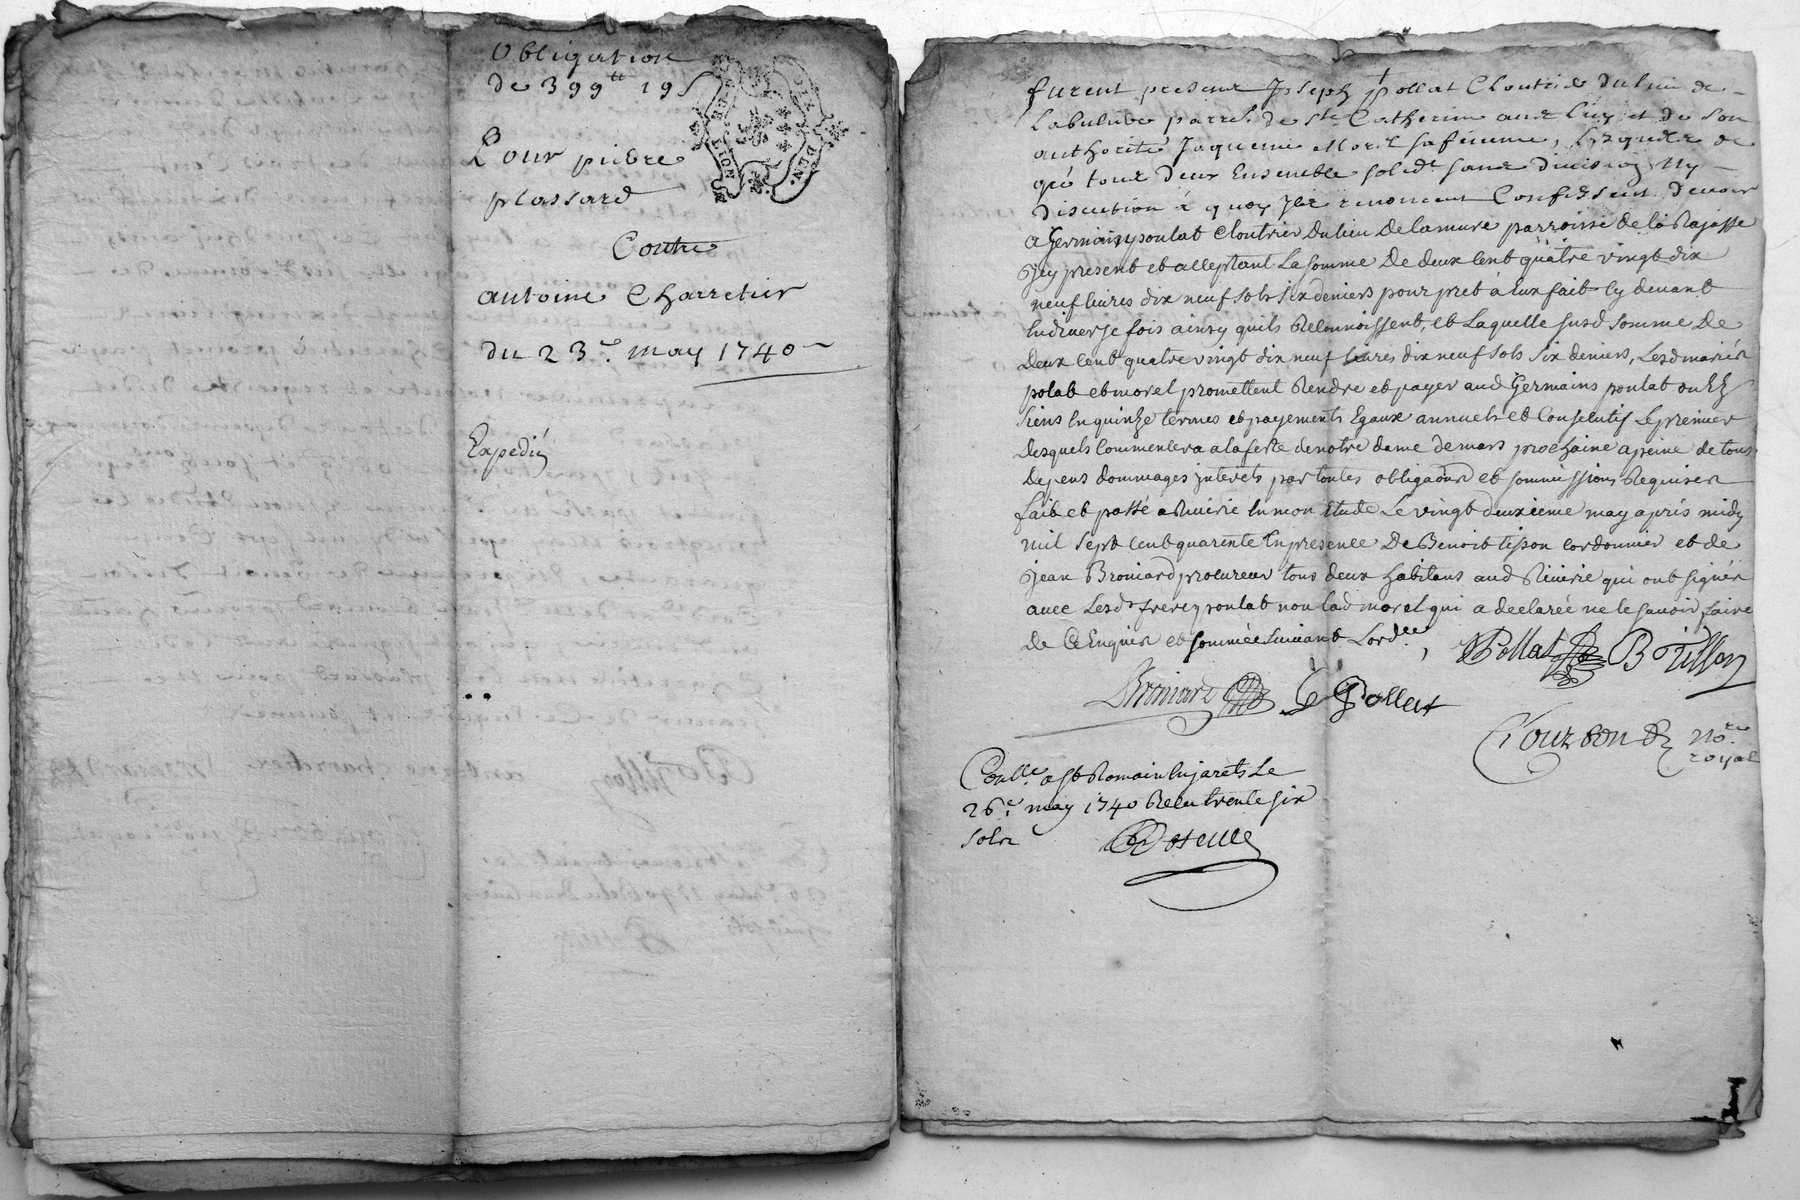 Obligation
de 399tt 19s
Pour pierre
plassard
Contre
antoine Charretier
du 23e. may 1740
Expedié
furent presens Joseph pollat Cloutrier du lieu de
parre. de Ste Catherine et de son
authorité Jaquemie Morel sa femme, Lesquels de
gré tous deux Ensemble solidt sans division ny
discution à quoy Ils renoncent Confessent devoir
a Germain poulat Cloutrier du lieu de lamure parroisse de la Rajasse
Icy present et acceptant La somme De deux Cent quatre vingt dix
neuf livres dix neuf sols six deniers pour pret à Eux fait Cy devant
En diverse fois ainsy quils Reconnoissent, et Laquelle susd somme De
Deux Cent quatre vingt dix neuf livres dix neuf sols six deniers, Lesd mariés
polat et morel promettent Rendre et payer aud Germains poulat ou Es
siens En quinze termes et payements Egaux annuels et Consecutifs Le premier
Desquels Commencera a la feste de notre dame de mars prochaine a peine de tous
Depens dommages interets par toutes obligaons et soumissions Requises
fait et passé a Riverie En mon Etude Le vingt deuxieme may aprés midy
mil sept Cent quarente En presence De Benoit tisson Cordonnier et de
Jean Broniard procureur tous deux habitans aud Riverie qui ont signés
avec Lesds freres poulat non lad morel qui a declarée ne le savoir faire
de Ce Enquise et sommée suivant Lordce,
Pollat B Tisson
Broniard G Pollat
nore
royal
Conlle. a St Romain En jarets Le
26e. may 1740 Recu trente six
sols